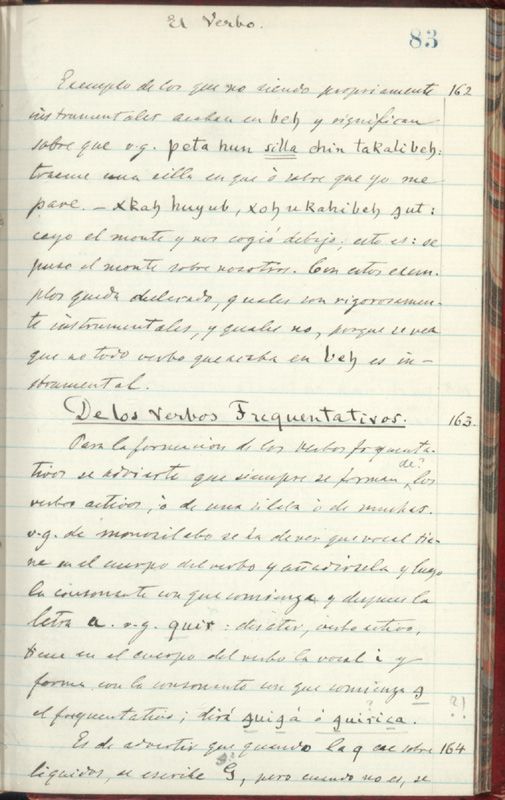 El Verbo.
83
Exemplo de los que no siendo propriamente 162
instrumentales acaban en beh y significan
sobre que v.g. peta hun silla chin takalibeh:
traeme una silla en que ò sobre que yo me
pare. — xkah huyub, xoh ukahibeh gut:
cayo el monte y nos cogió debajo; esto es: se
puso el monte sobre nosotros. Con estos exem-
plos queda declarado, quales son rigorosamen-
te instrumentales, y quales no, porque se vea
que no todo verbo que acaba en beh es in-
strumental.
De los Verbos Frequentativos. 163.
Para la formacion de los verbos frequenta-
tivos se advierte que siempre se forman, los
de?
verbos activos, ò de una silaba ò de muchas.
v.g. de monosilabo se ha de ver que vocal tie-
ne en el cuerpo del verbo y añadirsela y luego
la consonante con que comienza y despues la
letra a. v.g. quir: desatar, verbo activo,
tiene en el cuerpo del verbo la vocal i y
forma con la consonante con que comienza g
el frequentativo; dirá guigá ó guirica. ?!
Es de advertir que quando la q cae sobre 164
liquidas, se escribe G, pero cuando no es, se